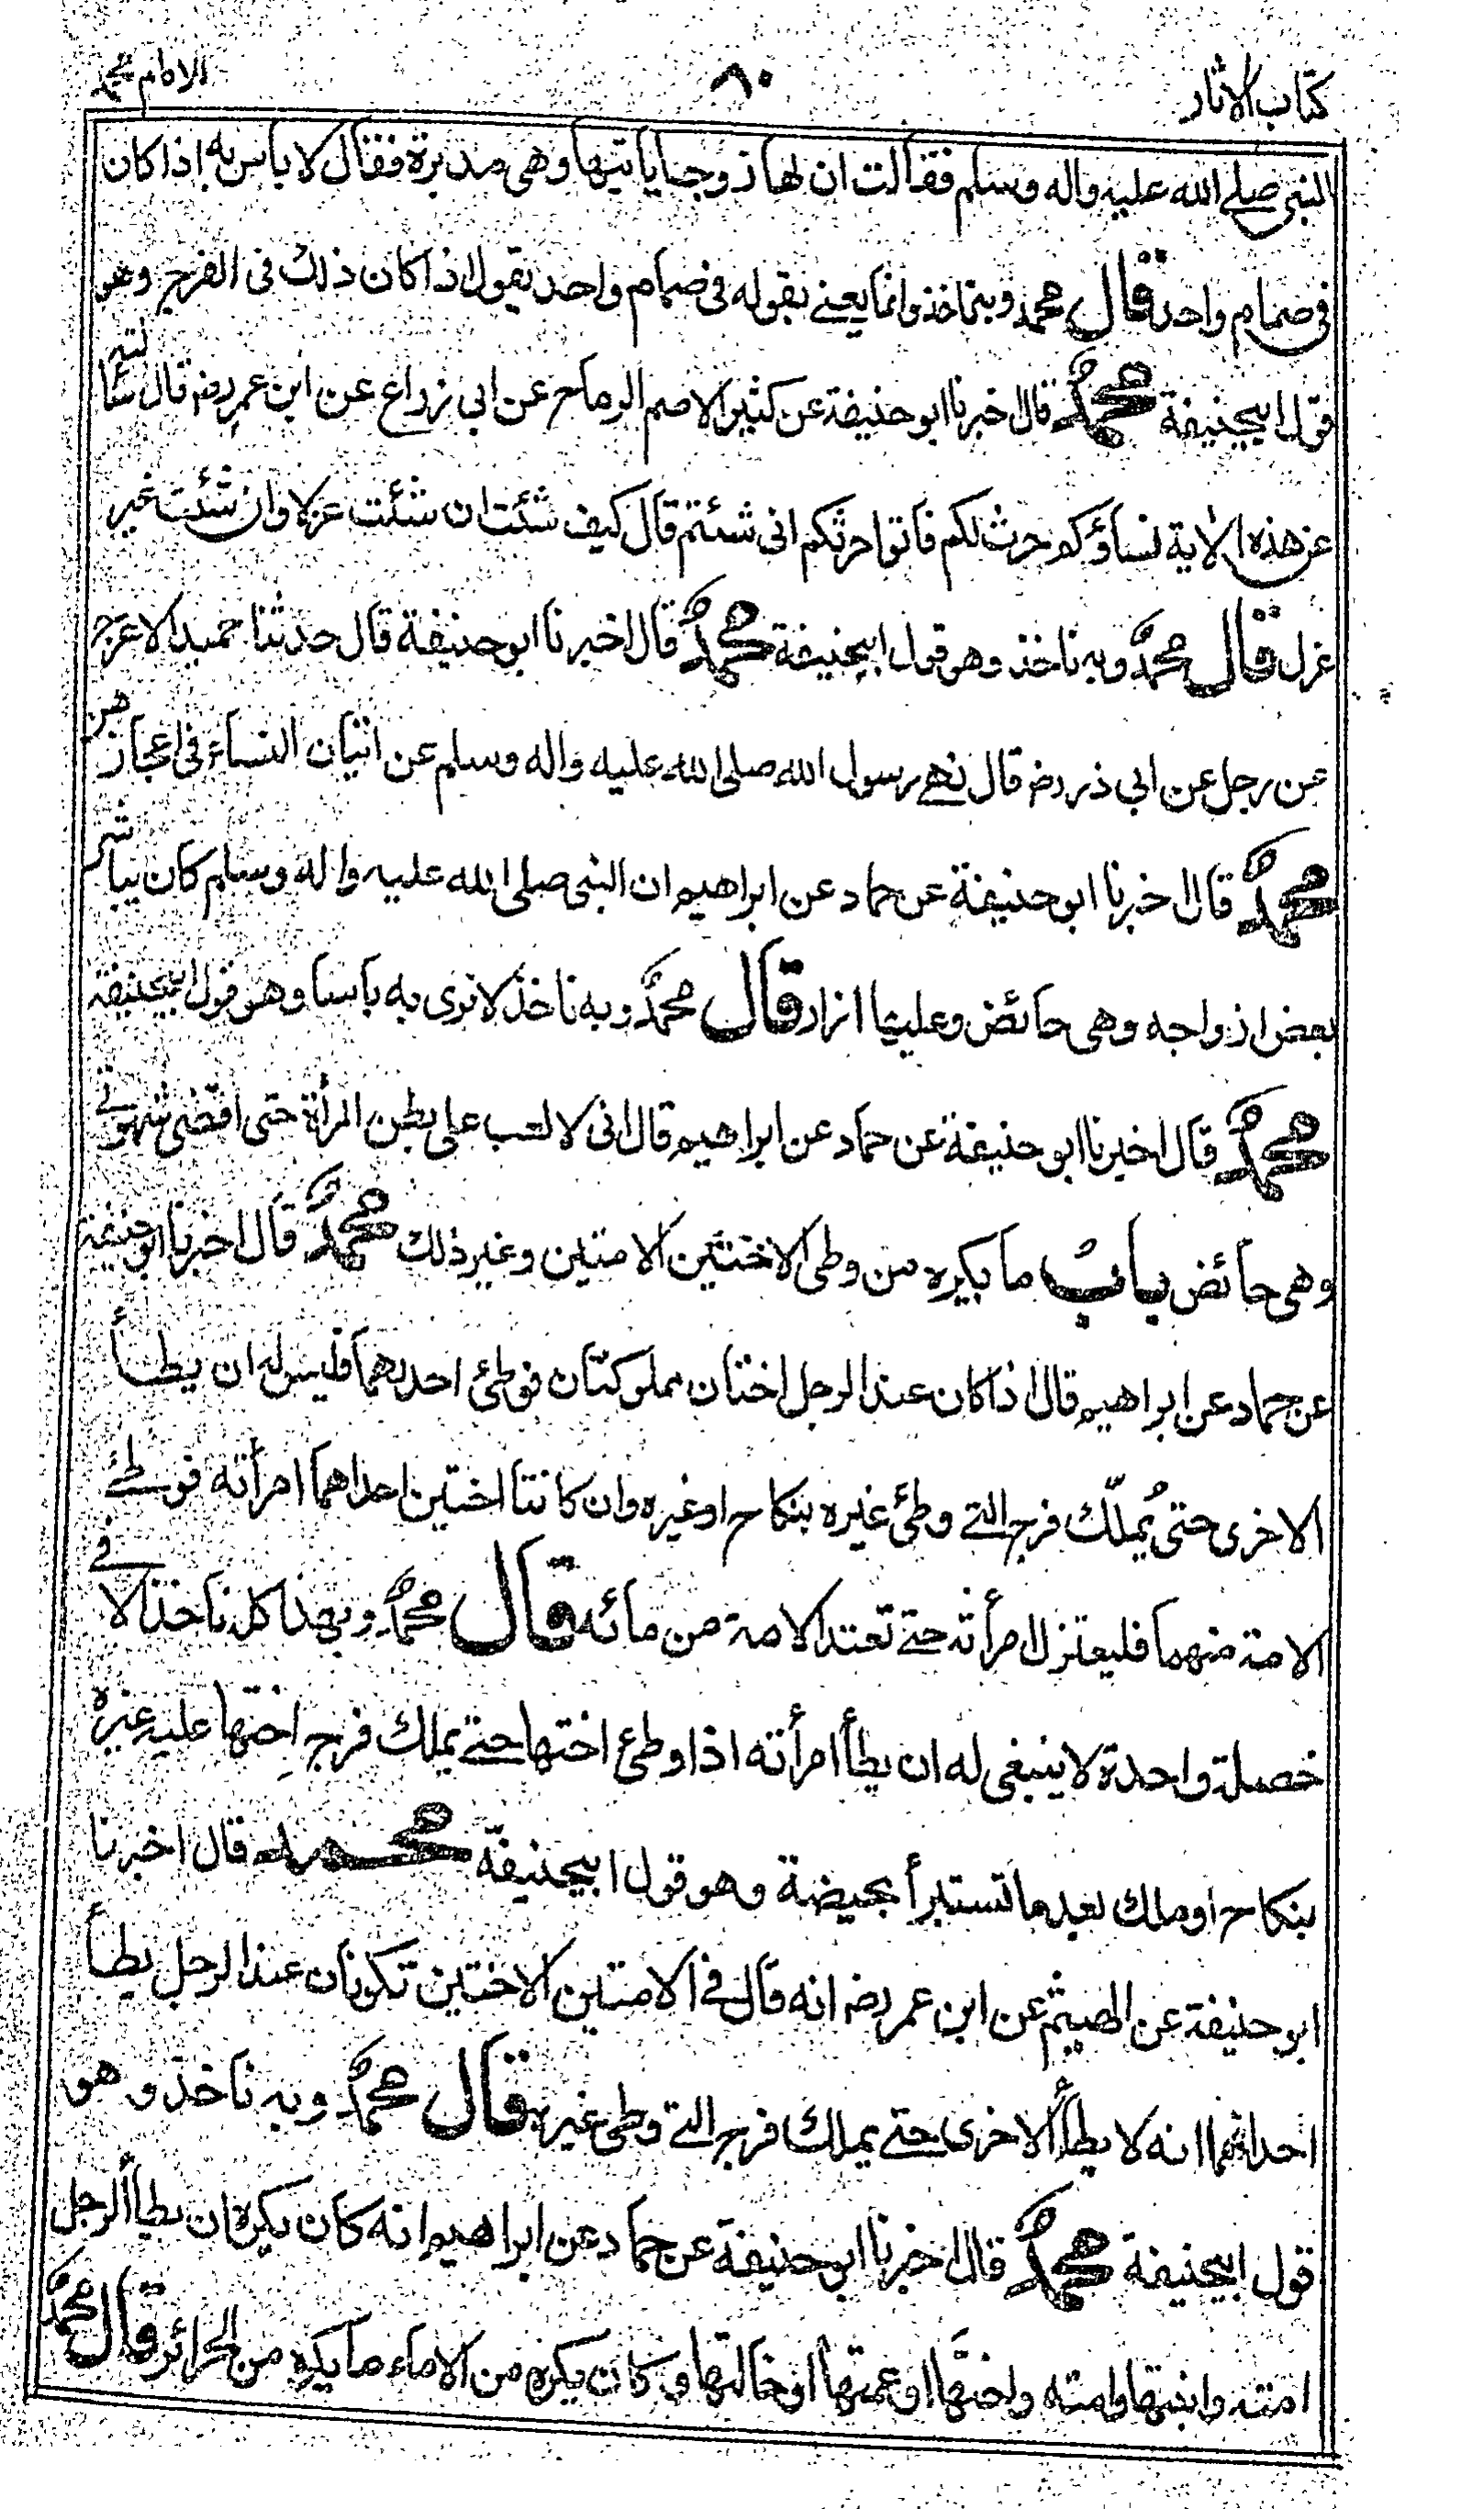 كتاب الاثار
٨٠
الامام محمد
النبى صلے الله عليه واله وسلم فقالت ان لها زوجا ياتيها وهى مدبرة فقال لا باس به اذا كان
فى صمام واحد قال محمد وبه ناخذ وانما يعنے بقوله فى صمام واحد يقول اذا كان ذلك فى الفرج وهو
قول ابيحنيفة محمد قال اخبرنا ابو حنيفة عن كثير الاصم الرماح عن ابى زراع عن ابن عمر رض قال سألته
عن هذه الاية نساؤكم حرث لكم فاتوا حرثكم انى شئتم قال كيف شئت ان شئت عزلا وان شئت غير
عزل قال محمد وبه ناخذ وهو قول ابيحنيفة محمد قال اخبرنا ابو حنيفة قال حدثنا حميد الاعرج
عن رجل عن ابى ذر رض قال نهے رسول الله صلى الله عليه واله وسلم عن اتيان النساء فى اعجازهن
محمد قال اخبرنا ابو حنيفة عن حماد عن ابراهيم ان النبى صلى الله عليه واله وسلم كان يباشر
بعض ازواجه وهى حائض وعليها ازار قال محمد وبه ناخذ لا نرى به باسا وهو قول ابيحنيفة
محمد قال اخبرنا ابو حنيفة عن حماد عن ابراهيم قال انى لالعب على بطن المرأة حتى اقضى شهوتى
وهى حائض باب ما يكره من وطى الاختين الامتين وغير ذلك محمد قال اخبرنا ابو حنيفة
عن حماد عن ابراهيم قال اذا كان عند الرجل اختان مملوكتان فوطئ احدهما فليس له ان يطأ
الاخرى حتى يُملّك فرج التے وطئ غيره بنكاح او غيره وان كانتا اختين احداهما امرأته فوطئے
الامة منهما فليعتزل امرأته حتے تعتد الامة من مائه قال محمد وبهذا كله ناخذ الا فے
خصلة واحدة لا ينبغى له ان يطأ امرأته اذا وطئ اختها حتے يملك فرج اختها عليه غيره
بنكاح او ملك بعد ما تستبرأ بحيضة وهو قول ابيحنيفة محمد قال اخبرنا
ابو حنيفة عن الهيثم عن ابن عمر رض انه قال فے الامتين الاختين تكونان عند الرجل يطأ
احداهما انه لا يطأ الاخرى حتے يملك فرج التے وطى غيره قال محمد وبه ناخذ وهو
قول ابيحنيفة محمد قال اخبرنا ابو حنيفة عن حماد عن ابراهيم انه كان يكره ان يطأ الرجل
امته وابنتها وامته واختها او عمتها او خالتها وكان يكره من الاماء ما يكره من الحرائر قال محمد